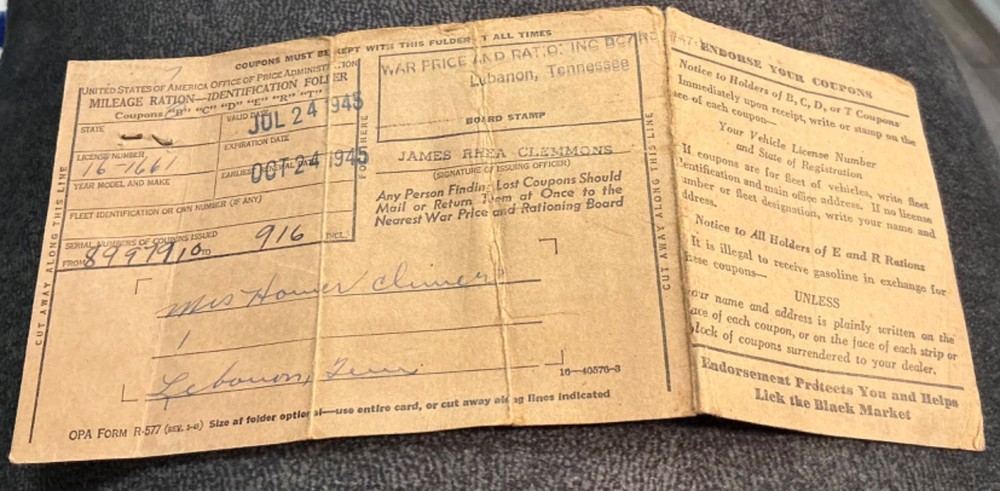 COUPONS MUST BE KEPT WITH THIS FOLDER AT ALL TIMES
UNITED STATES OF AMERICA OFFICE OF PRICE ADMINISTRATION
MILEAGE RATION—IDENTIFICATION FOLDER
Coupons "B" "C" "D" "E" "R" "T"
STATE
VALID
JUL 24 1945
LICENSE NUMBER
16-7661
EXPIRATION DATE
YEAR MODEL AND MAKE
EARLIEST RENEWAL DATE
OCT 24 1945
FLEET IDENTIFICATION OR OWN NUMBER (IF ANY)
SERIAL NUMBERS OF COUPONS ISSUED
FROM 8997910 TO 916 INCL.
HERE
WAR PRICE AND RATIONING BOARD
Lebanon, Tennessee
BOARD STAMP
JAMES RHEA CLEMMONS
(SIGNATURE OF ISSUING OFFICER)
Any Person Finding Lost Coupons Should
Mail or Return Them at Once to the
Nearest War Price and Rationing Board
Mrs Homer Climer
1
Lebanon, Tenn
16—40576-3
OPA FORM R-577 Size of folder optional—use entire card, or cut away along lines indicated
CUT AWAY ALONG THIS LINE
CUT AWAY ALONG THIS LINE
ENDORSE YOUR COUPONS
Notice to Holders of B, C, D, or T Coupons
Immediately upon receipt, write or stamp on the
face of each coupon—
Your Vehicle License Number
and State of Registration
If coupons are for fleet of vehicles, write fleet
identification and main office address. If no license
number or fleet designation, write your name and
address.
Notice to All Holders of E and R Rations
It is illegal to receive gasoline in exchange for
these coupons—
UNLESS
your name and address is plainly written on the
face of each coupon, or on the face of each strip or
block of coupons surrendered to your dealer.
Endorsement Protects You and Helps
Lick the Black Market